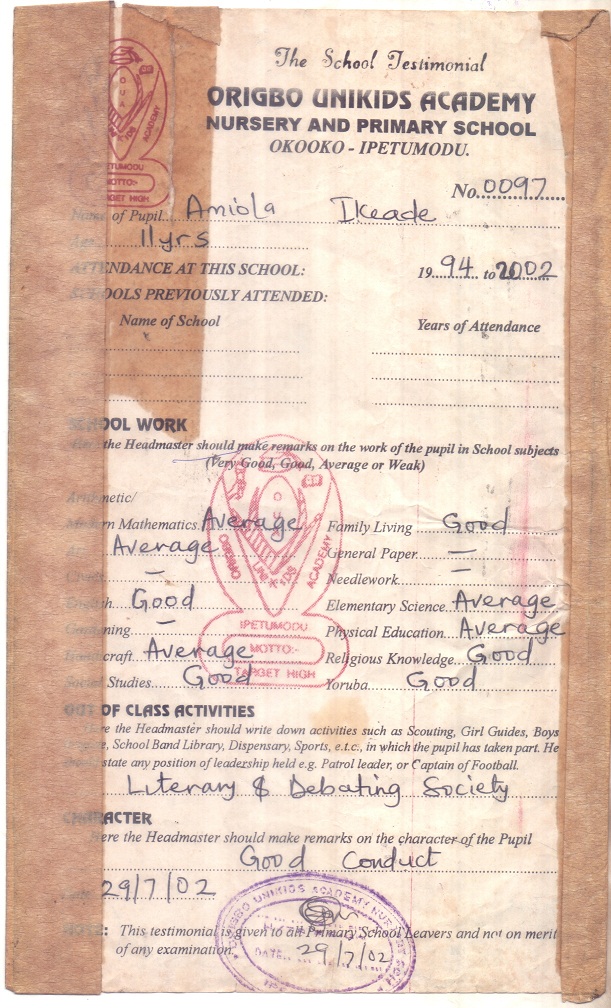 The School Testimonial
ORIGBO UNIKIDS ACADEMY
NURSERY AND PRIMARY SCHOOL
OKOOKO - IPETUMODU.
IPETUMODU
MOTTO:-
TARGET HIGH
No. 0097
Name of Pupil... Amiola Ikeade
Age 11yrs
ATTENDANCE AT THIS SCHOOL: 19 94 to 2002
SCHOOLS PREVIOUSLY ATTENDED:
Name of School Years of Attendance
SCHOOL WORK
the Headmaster should make remarks on the work of the pupil in School subjects
(Very Good, Good, Average or Weak)
Arithmetic/
Modern Mathematics. Average Family Living Good
Average General Paper —
— Needlework —
English Good Elementary Science. Average
— Physical Education Average
Handcraft Average Religious Knowledge Good
Social Studies Good Yoruba Good
ORIGBO UNIKIDS ACADEMY
IPETUMODU
MOTTO:-
TARGET HIGH
OUT OF CLASS ACTIVITIES
Here the Headmaster should write down activities such as Scouting, Girl Guides, Boys
School Band Library, Dispensary, Sports, e.t.c., in which the pupil has taken part. He
state any position of leadership held e.g. Patrol leader, or Captain of Football.
Literary & Debating Society
CHARACTER
Here the Headmaster should make remarks on the character of the Pupil
Good Conduct
Date 29/7/02
NOTE: This testimonial is given to all Primary School Leavers and not on merit
of any examination.
ORIGBO UNIKIDS ACADEMY
DATE 29/7/02